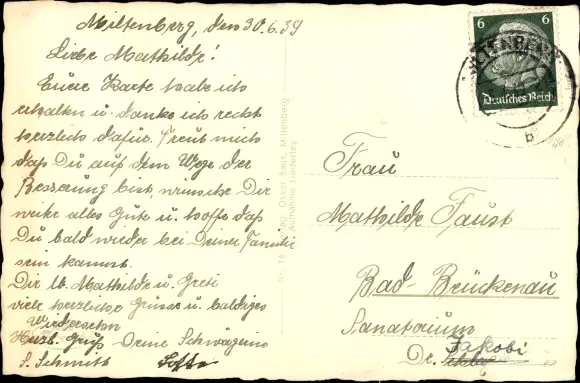 Miltenberg, den 30.6.39
Liebe Mathilde!
Eure Karte habe ich
erhalten u. danke ich recht
herzlich dafür. Freut mich
daß Du auf dem Wege der
Besserung bist, wünsche Dir
weite alles Gute u. hoffe daß
Du bald wieder bei Deiner Familie
sein kannst.
Dir lb. Mathilde u. Greti
viele herzliche Grüsse u. baldiges
Wiedersehn
Herzl. Gruß Deine Schwägerin
S. Schmitt
6 6
Deutsches Reich
MILTENBERG
b
Frau
Mathilde Faust
Bad-Brückenau
Sanatorium
Dr. Jakobi
Verlag Oskar Bens, Miltenberg
Aufnahme Liederley
Nr. 16